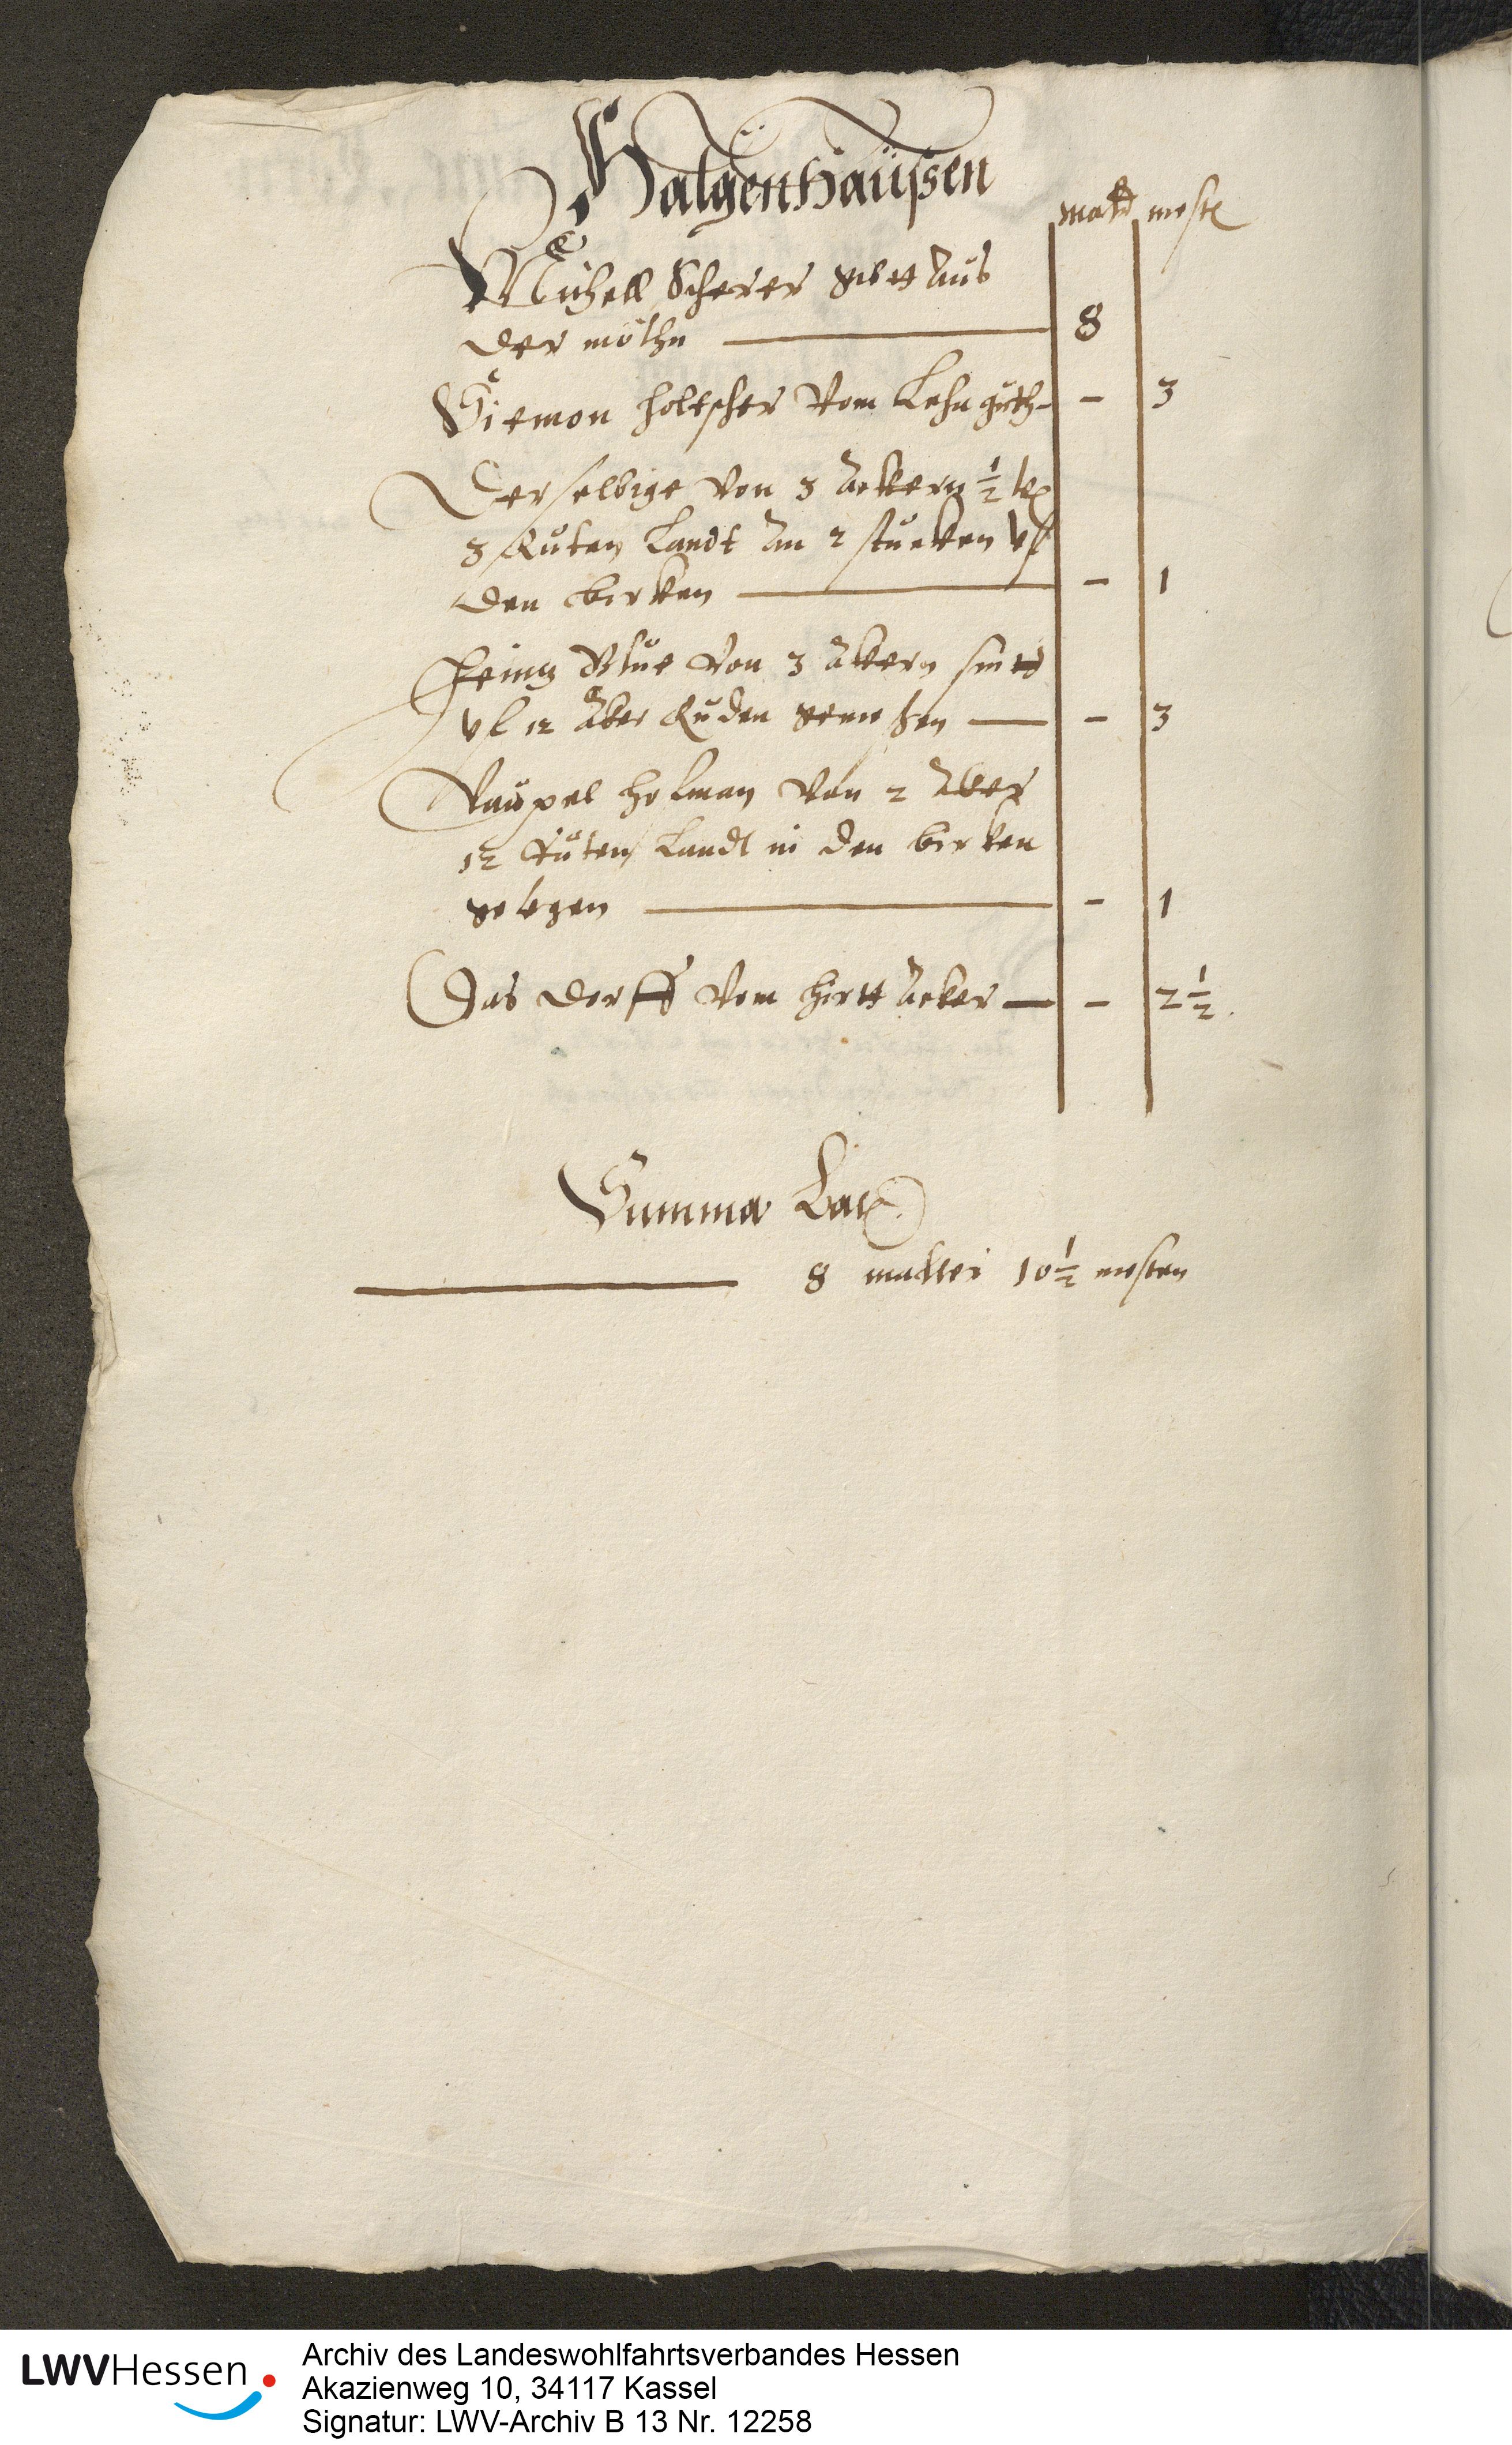 Halgenhaüßen
mald mesten
Michell Scherer gibtt aus
der möhln 8
Siemon holtscher vom Lehnguth - 3
Derselbige von 3 Aeckern ½
8 Ruten Landt an 2 stucken uf
den bircken - 1
Heintz von 3 Ackern sintt
uf 12 Acker Ruden gemeßen - 3
Paupel holman von 2 Acker
12 Ruten Landt in den bircken
gelegen - 1
Das dorff vom hirtt Acker - 2½
Summa Lat
8 malter 10½ mesten
LWVHessen
Archiv des Landeswohlfahrtsverbandes Hessen
Akazienweg 10, 34117 Kassel
Signatur: LWV-Archiv B 13 Nr. 12258